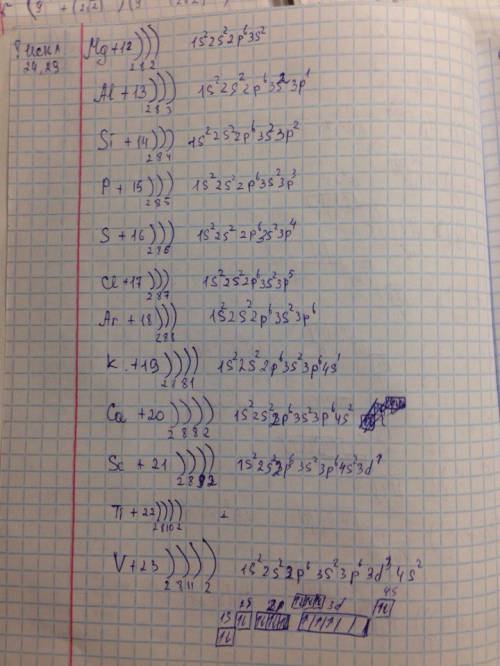 ! искл
24, 29
Mg +12 ))) 2 8 2 1s²2s²2p⁶3s²
Al +13 ))) 2 8 3 1s²2s²2p⁶3s²3p¹
Si +14 ))) 2 8 4 1s²2s²2p⁶3s²3p²
P +15 ))) 2 8 5 1s²2s²2p⁶3s²3p³
S +16 ))) 2 8 6 1s²2s²2p⁶3s²3p⁴
Cl +17 ))) 2 8 7 1s²2s²2p⁶3s²3p⁵
Ar +18 ))) 2 8 8 1s²2s²2p⁶3s²3p⁶
K +19 )))) 2 8 8 1 1s²2s²2p⁶3s²3p⁶4s¹
Ca +20 )))) 2 8 8 2 1s²2s²2p⁶3s²3p⁶4s²
Sc +21 )))) 2 8 9 2 1s²2s²2p⁶3s²3p⁶4s²3d¹
Ti +22 )))) 2 8 10 2
V +23 )))) 2 8 11 2 1s²2s²2p⁶3s²3p⁶3d³4s²
1s 2s 2p 3d 4s